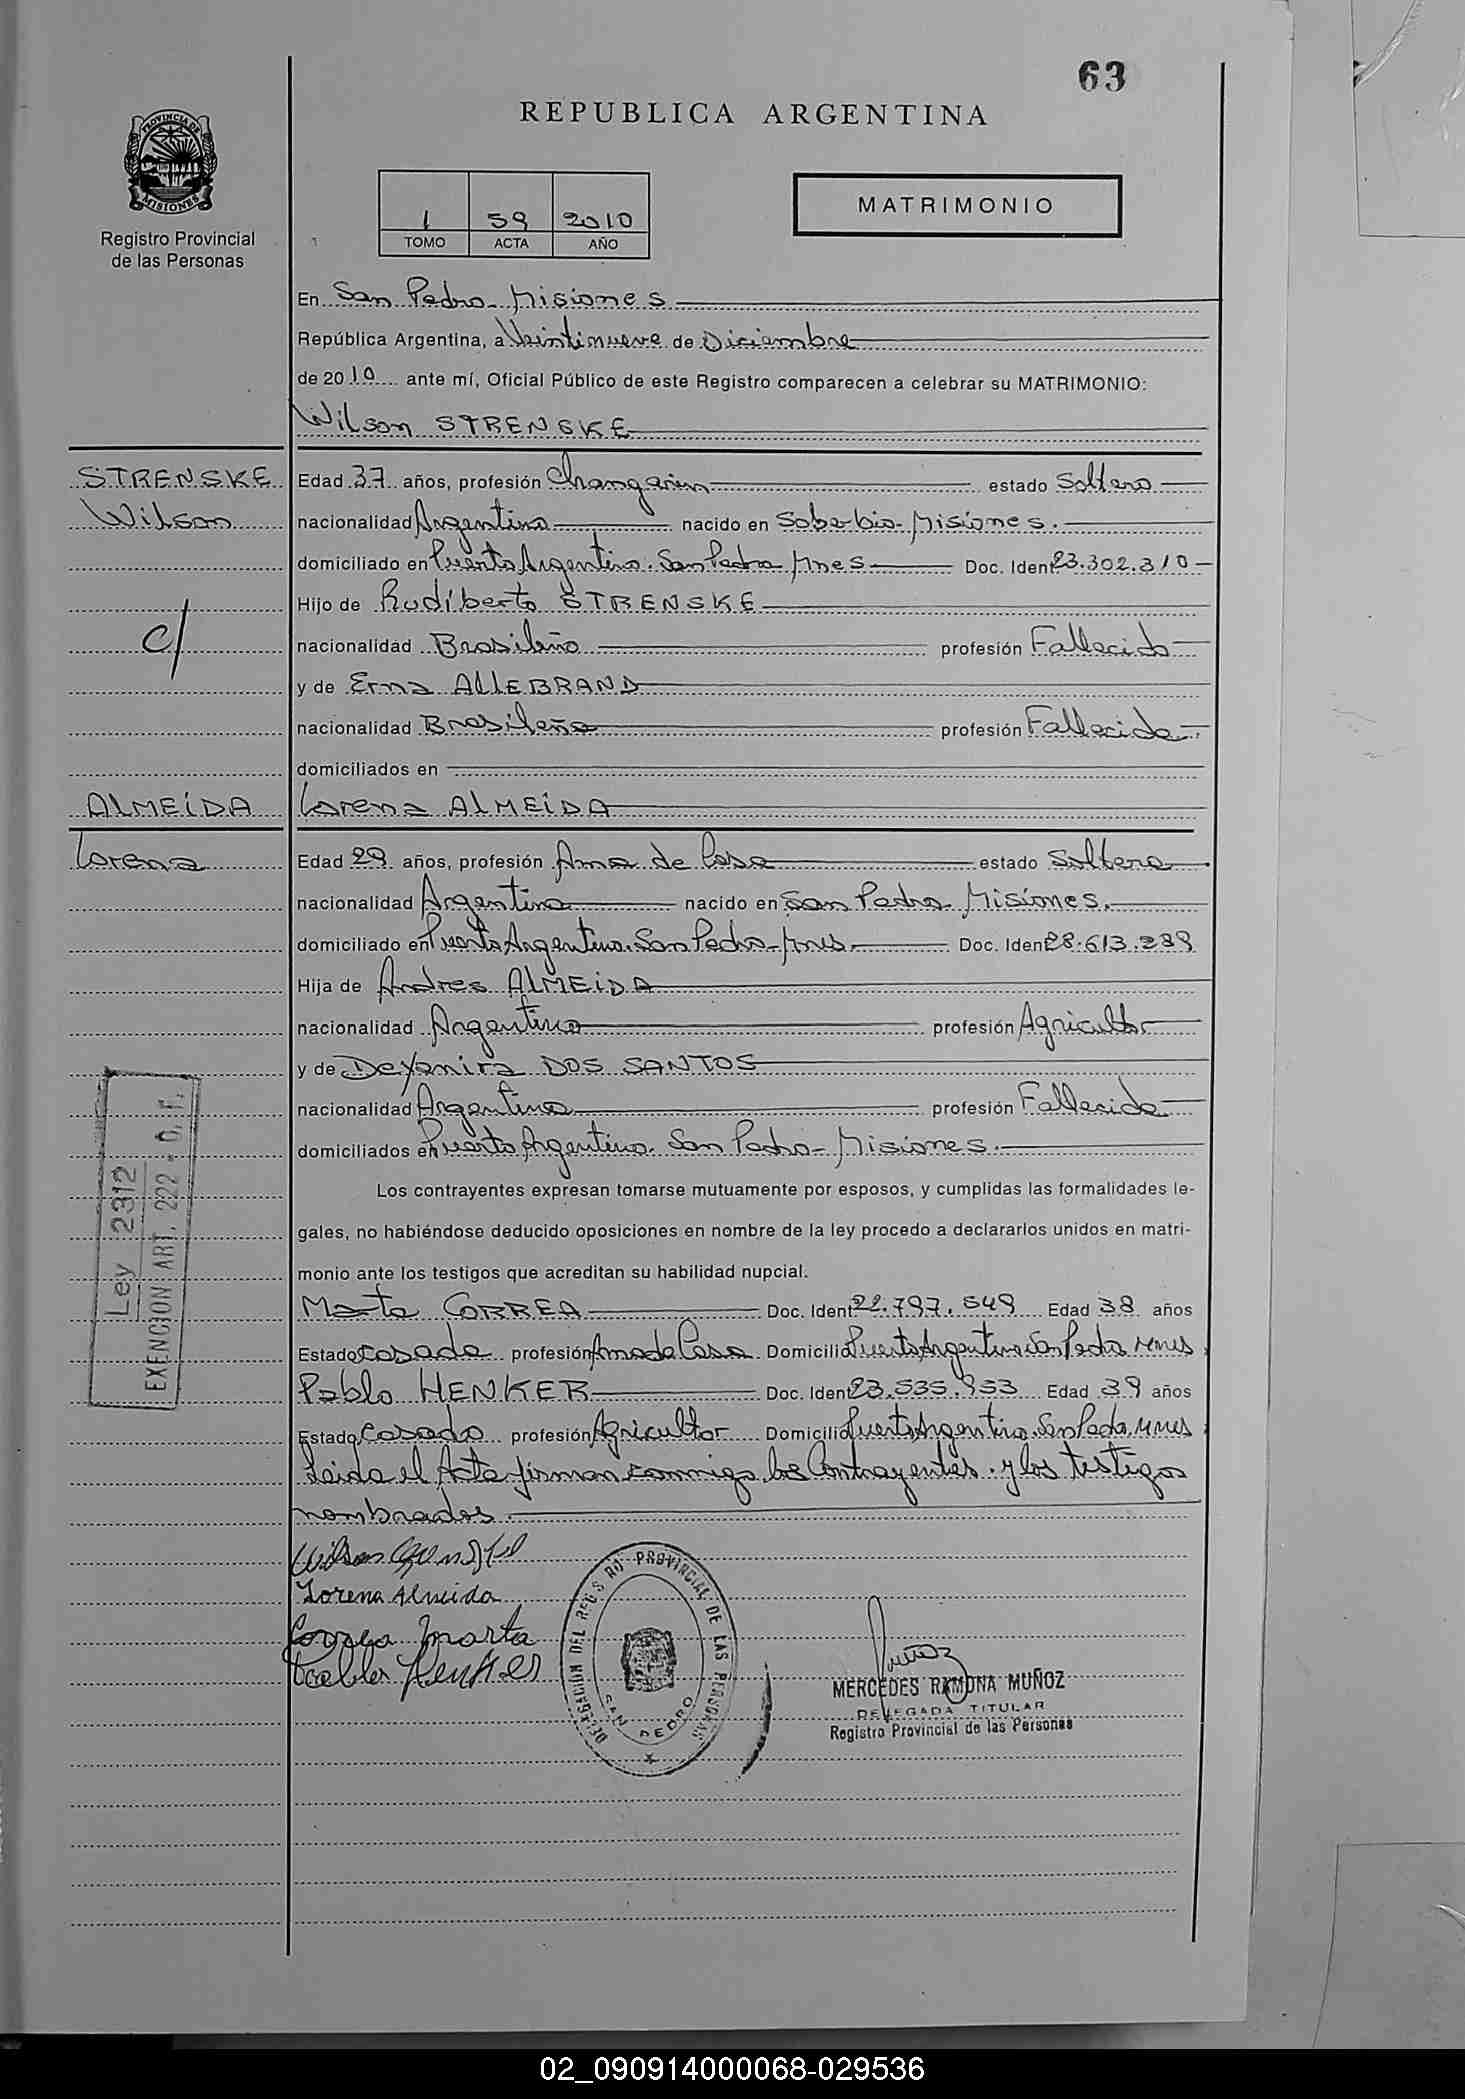 63
REPUBLICA ARGENTINA
PROVINCIA DE
MISIONES
Registro Provincial
de las Personas
1 59 2010
TOMO ACTA AÑO
MATRIMONIO
En San Pedro - Misiones
República Argentina, a Veintinueve de Diciembre
de 2010 ante mí, Oficial Público de este Registro comparecen a celebrar su MATRIMONIO:
Wilson STRENSKE
STRENSKE
Wilson
c/
ALMEIDA
Lorena
Edad 37 años, profesión Changarin estado Soltero
nacionalidad Argentina nacido en Soberbio - Misiones.
domiciliado en Puerto Argentino. San Pedro Mnes Doc. Ident 23.302.310
Hijo de Rudiberto STRENSKE
nacionalidad Brasileño profesión Fallecido
y de Erna ALLEBRAND
nacionalidad Brasileña profesión Fallecida
domiciliados en
Lorena ALMEIDA
Edad 29 años, profesión Ama de Casa estado Soltera
nacionalidad Argentina nacido en San Pedro Misiones.
domiciliado en Puerto Argentino. San Pedro - Mnes Doc. Ident 28.613.289
Hija de Andres ALMEIDA
nacionalidad Argentino profesión Agricultor
y de Deyanira DOS SANTOS
nacionalidad Argentina profesión Fallecida
domiciliados en Puerto Argentino. San Pedro - Misiones.
Los contrayentes expresan tomarse mutuamente por esposos, y cumplidas las formalidades le-
gales, no habiéndose deducido oposiciones en nombre de la ley procedo a declararlos unidos en matri-
monio ante los testigos que acreditan su habilidad nupcial.
Marta CORREA Doc. Ident 22.797.549 Edad 38 años
Estado casada profesión Ama de Casa Domicilio Puerto Argentino San Pedro Mnes
Pablo HENKER Doc. Ident 23.535.953 Edad 39 años
Estado Casado profesión Agricultor Domicilio Puerto Argentino. San Pedro. Mnes
Leida el Acta firman conmigo los Contrayentes. y los testigos
nombrados.
Ley 2312
EXENCION ART. 222 - C. F.
Wilson
Lorena Almeida
Correa Marta
Pablo Henker
DELEGACION DEL REGISTRO PROVINCIAL DE LAS PERSONAS
SAN PEDRO
Muñoz
MERCEDES RAMONA MUÑOZ
DELEGADA TITULAR
Registro Provincial de las Personas
02_090914000068-029536